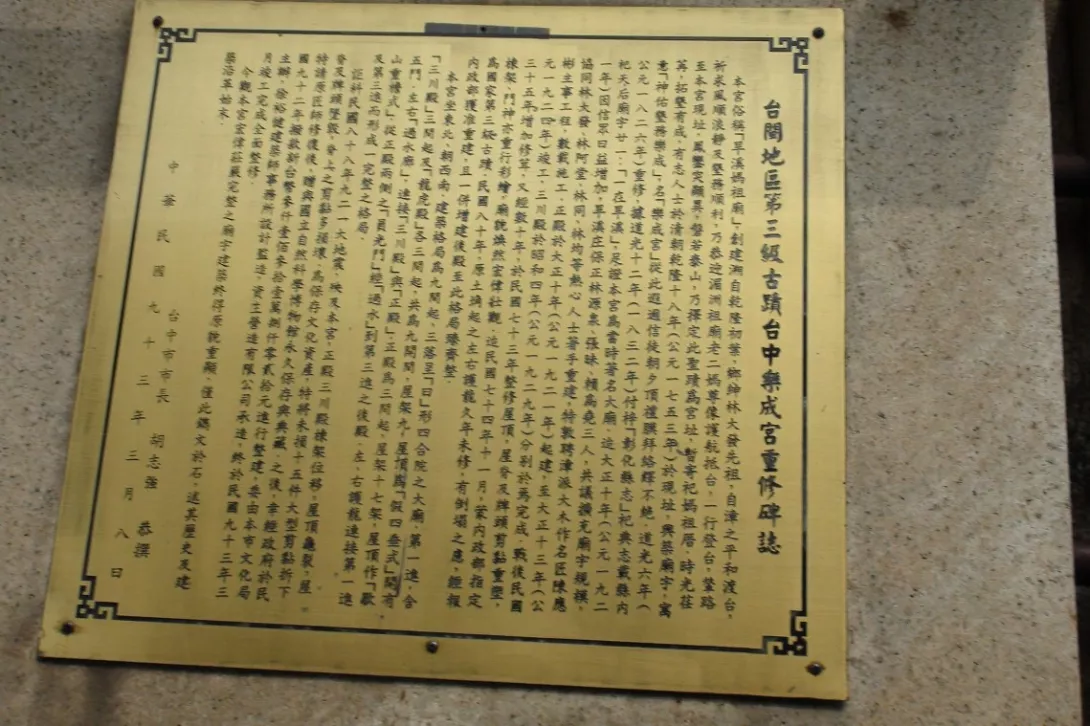 台閩地區第三級古蹟台中樂成宮重修碑誌
本宮俗稱「旱溪媽祖廟」，創建溯自乾隆初葉，鄉紳林大發先祖，自漳之平和渡台，
祈求風順浪靜及墾務順利，乃恭迎湄洲祖廟老二媽尊像護航抵台，一行登台，輦路
至本宮現址，鳳鑾突顯異，磐若泰山，乃擇定此聖蹟為宮址，暫寄祀媽祖厝，時光荏
苒，拓墾有成，有志人士於清朝乾隆十八年（公元一七五三年）於現址，興築廟宇，寓
意「神佑墾務樂成」，名「樂成宮」從此遐邇信徒朝夕頂禮膜拜絡繹不絕，道光六年（
公元一八二六年）重修，據道光十二年（一八三二年）付梓「彰化縣志」祀典志載縣內
祀天后廟宇廿一：「一在旱溪」，足證本宮為當時著名大廟，迨大正十年（公元一九二
一年）因信眾日益增加，旱溪庄保正林源泉、張昧、賴高堯三人，共議擴充廟宇規模，
協同林大發、林阿堂、林同、林均等熱心人士著手重建，特敦聘漳派大木作名匠陳應
彬主事工程，數載施工，正殿於大正十年（公元一九二一年）起建，至大正十三年（公
元一九二四年）竣工，三川殿於昭和四年（公元一九二九年）分別於焉完成，戰後民國
三十五年增加修葺，又經數十年，於民國七十三年整修屋頂，屋脊及牌頭剪黏重塑，
棟架、門神亦重行彩繪，廟貌煥然宏偉壯觀，迨民國七十四年十一月，蒙內政部指定
為國家第三級古蹟，民國八十年，原土埆起之左右護龍久年未修，有倒塌之慮，經報
內政部獲准重建，且一併增建後殿至此格局臻齊整．
本宮坐東北、朝西南，建築格局為九開起、三落呈「日」形四合院之大廟，第一進含
「三川殿」三開起及「龍虎殿」各三開起，共為九開間，屋架九，屋頂為「假四垂式」開有
五門，左右「過水廊」，連接「三川殿」與「正殿」，正殿為三開起，屋架十七架，屋頂作「歇
山重檐式」，從正殿兩側之「員光門」經「過水」到第三進之後殿，左、右護龍連接第一進
及第三進而形成一完整之格局．
詎料民國八十八年九二一大地震，殃及本宮，正殿三川殿棟架位移，屋頂龜裂，屋
脊及牌頭墜毀，脊上之剪黏多損壞，為保存文化資產，特將未損十五件大型剪黏折下
特請原匠師修復後，贈與國立自然科學博物館永久保存與典藏，之後，幸經政府於民
國九十二年撥款新台幣參仟壹佰參拾壹萬捌仟零貳拾元進行整建，委由本市文化局
主辦，徐裕健建築師事務所設計監造，資生營造有限公司承造，終於民國九十三年三
月竣工完成全面整修．
今觀本宮宏偉莊嚴完整之廟宇建築終得原貌重顯，僅此鐫文於石，述其歷史及建
築沿革始末．
台中市市長　胡志強　恭撰
中華民國九十三年三月八日